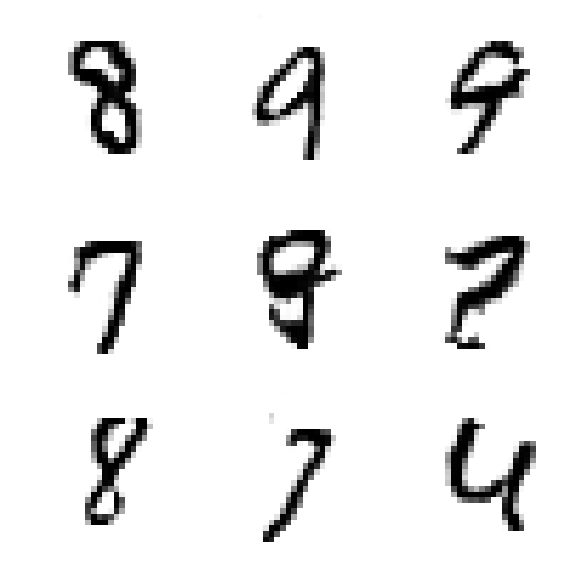 8 9 9
7 8 2
8 7 4